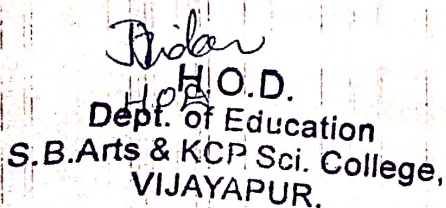 H.O.D.
HOD
Dept. of Education
S.B.Arts & KCP Sci. College,
VIJAYAPUR.